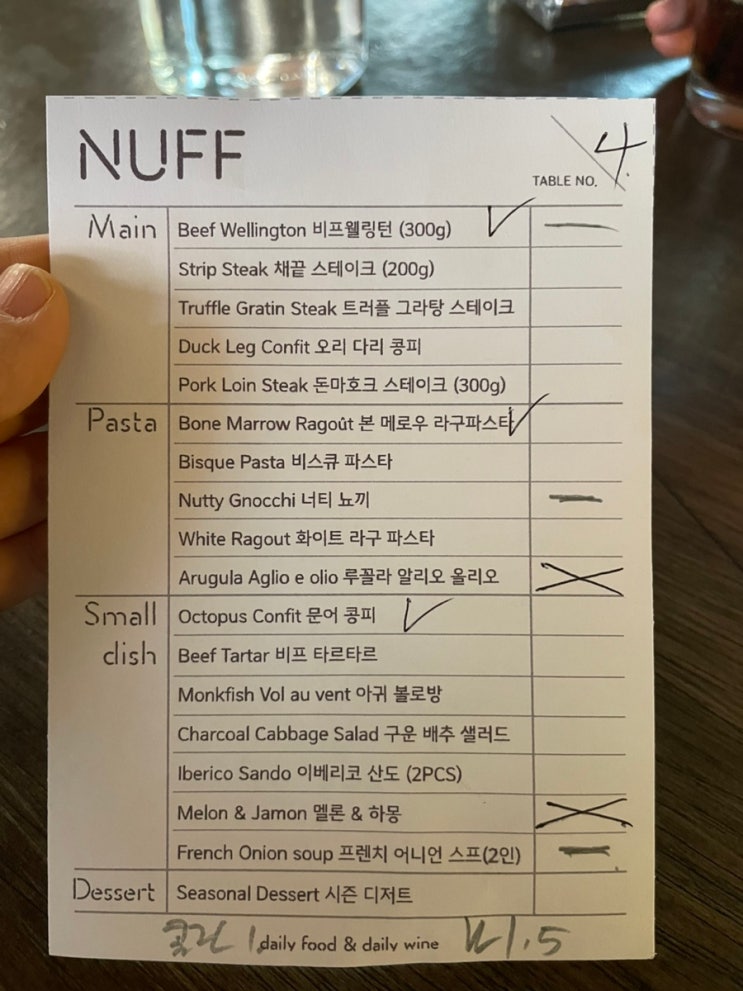 NUFF
TABLE NO. 4
Main
Beef Wellington 비프웰링턴 (300g)
Strip Steak 채끝 스테이크 (200g)
Truffle Gratin Steak 트러플 그라탕 스테이크
Duck Leg Confit 오리 다리 콩피
Pork Loin Steak 돈마호크 스테이크 (300g)
Pasta
Bone Marrow Ragoût 본 메로우 라구파스타
Bisque Pasta 비스큐 파스타
Nutty Gnocchi 너티 뇨끼
White Ragout 화이트 라구 파스타
Arugula Aglio e olio 루꼴라 알리오 올리오
Small dish
Octopus Confit 문어 콩피
Beef Tartar 비프 타르타르
Monkfish Vol au vent 아귀 볼로방
Charcoal Cabbage Salad 구운 배추 샐러드
Iberico Sando 이베리코 산도 (2PCS)
Melon & Jamon 멜론 & 하몽
French Onion soup 프렌치 어니언 스프(2인)
Dessert
Seasonal Dessert 시즌 디저트
daily food & daily wine